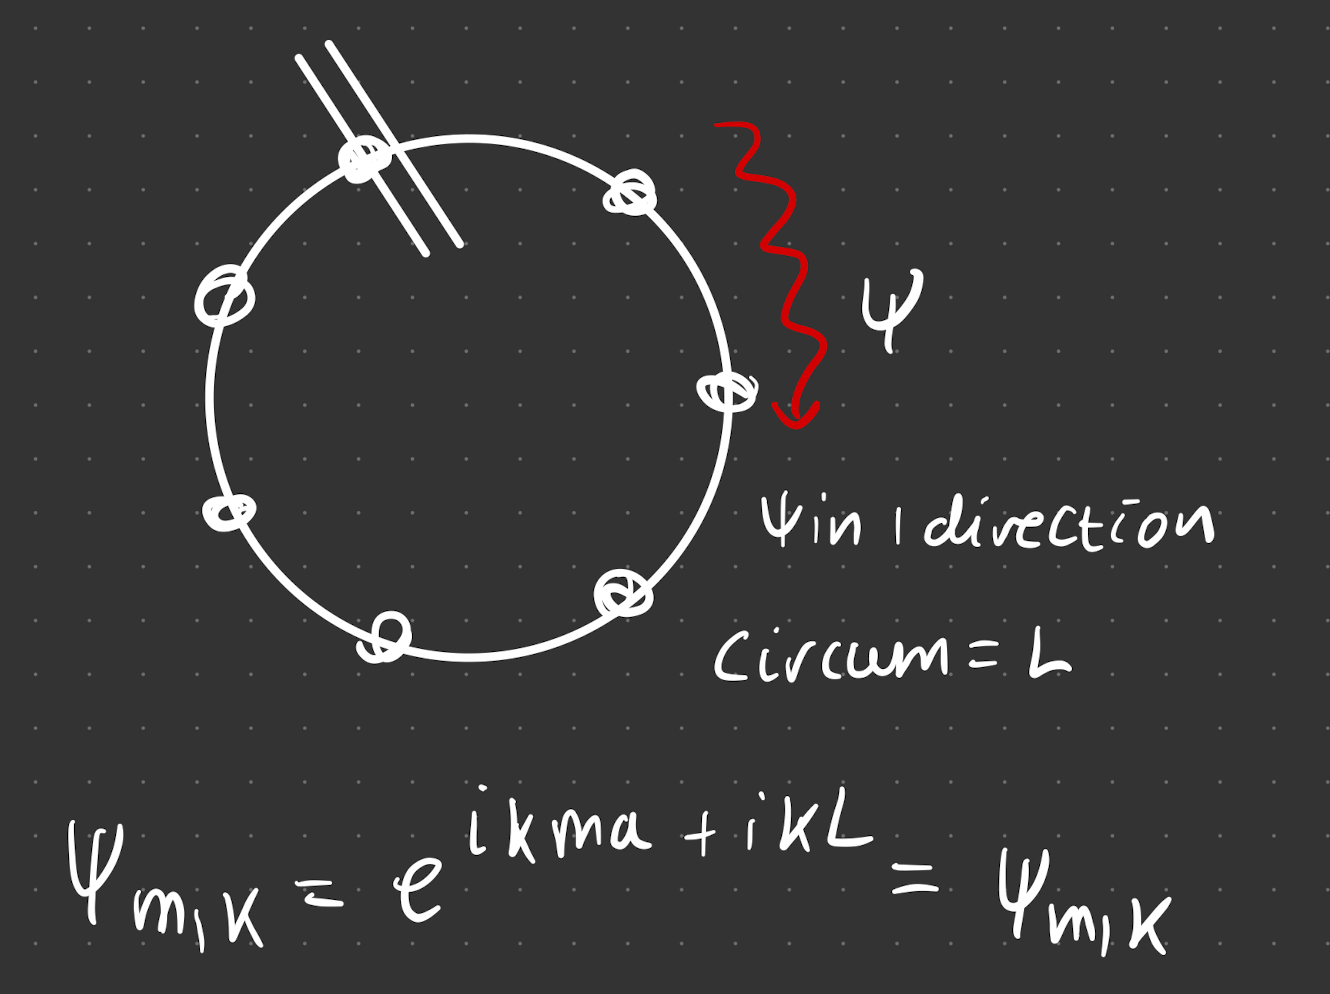 ψ
ψ in 1 direction
Circum = L
ψₘ,ₖ = e^{ikma + ikL} = ψₘ,ₖ